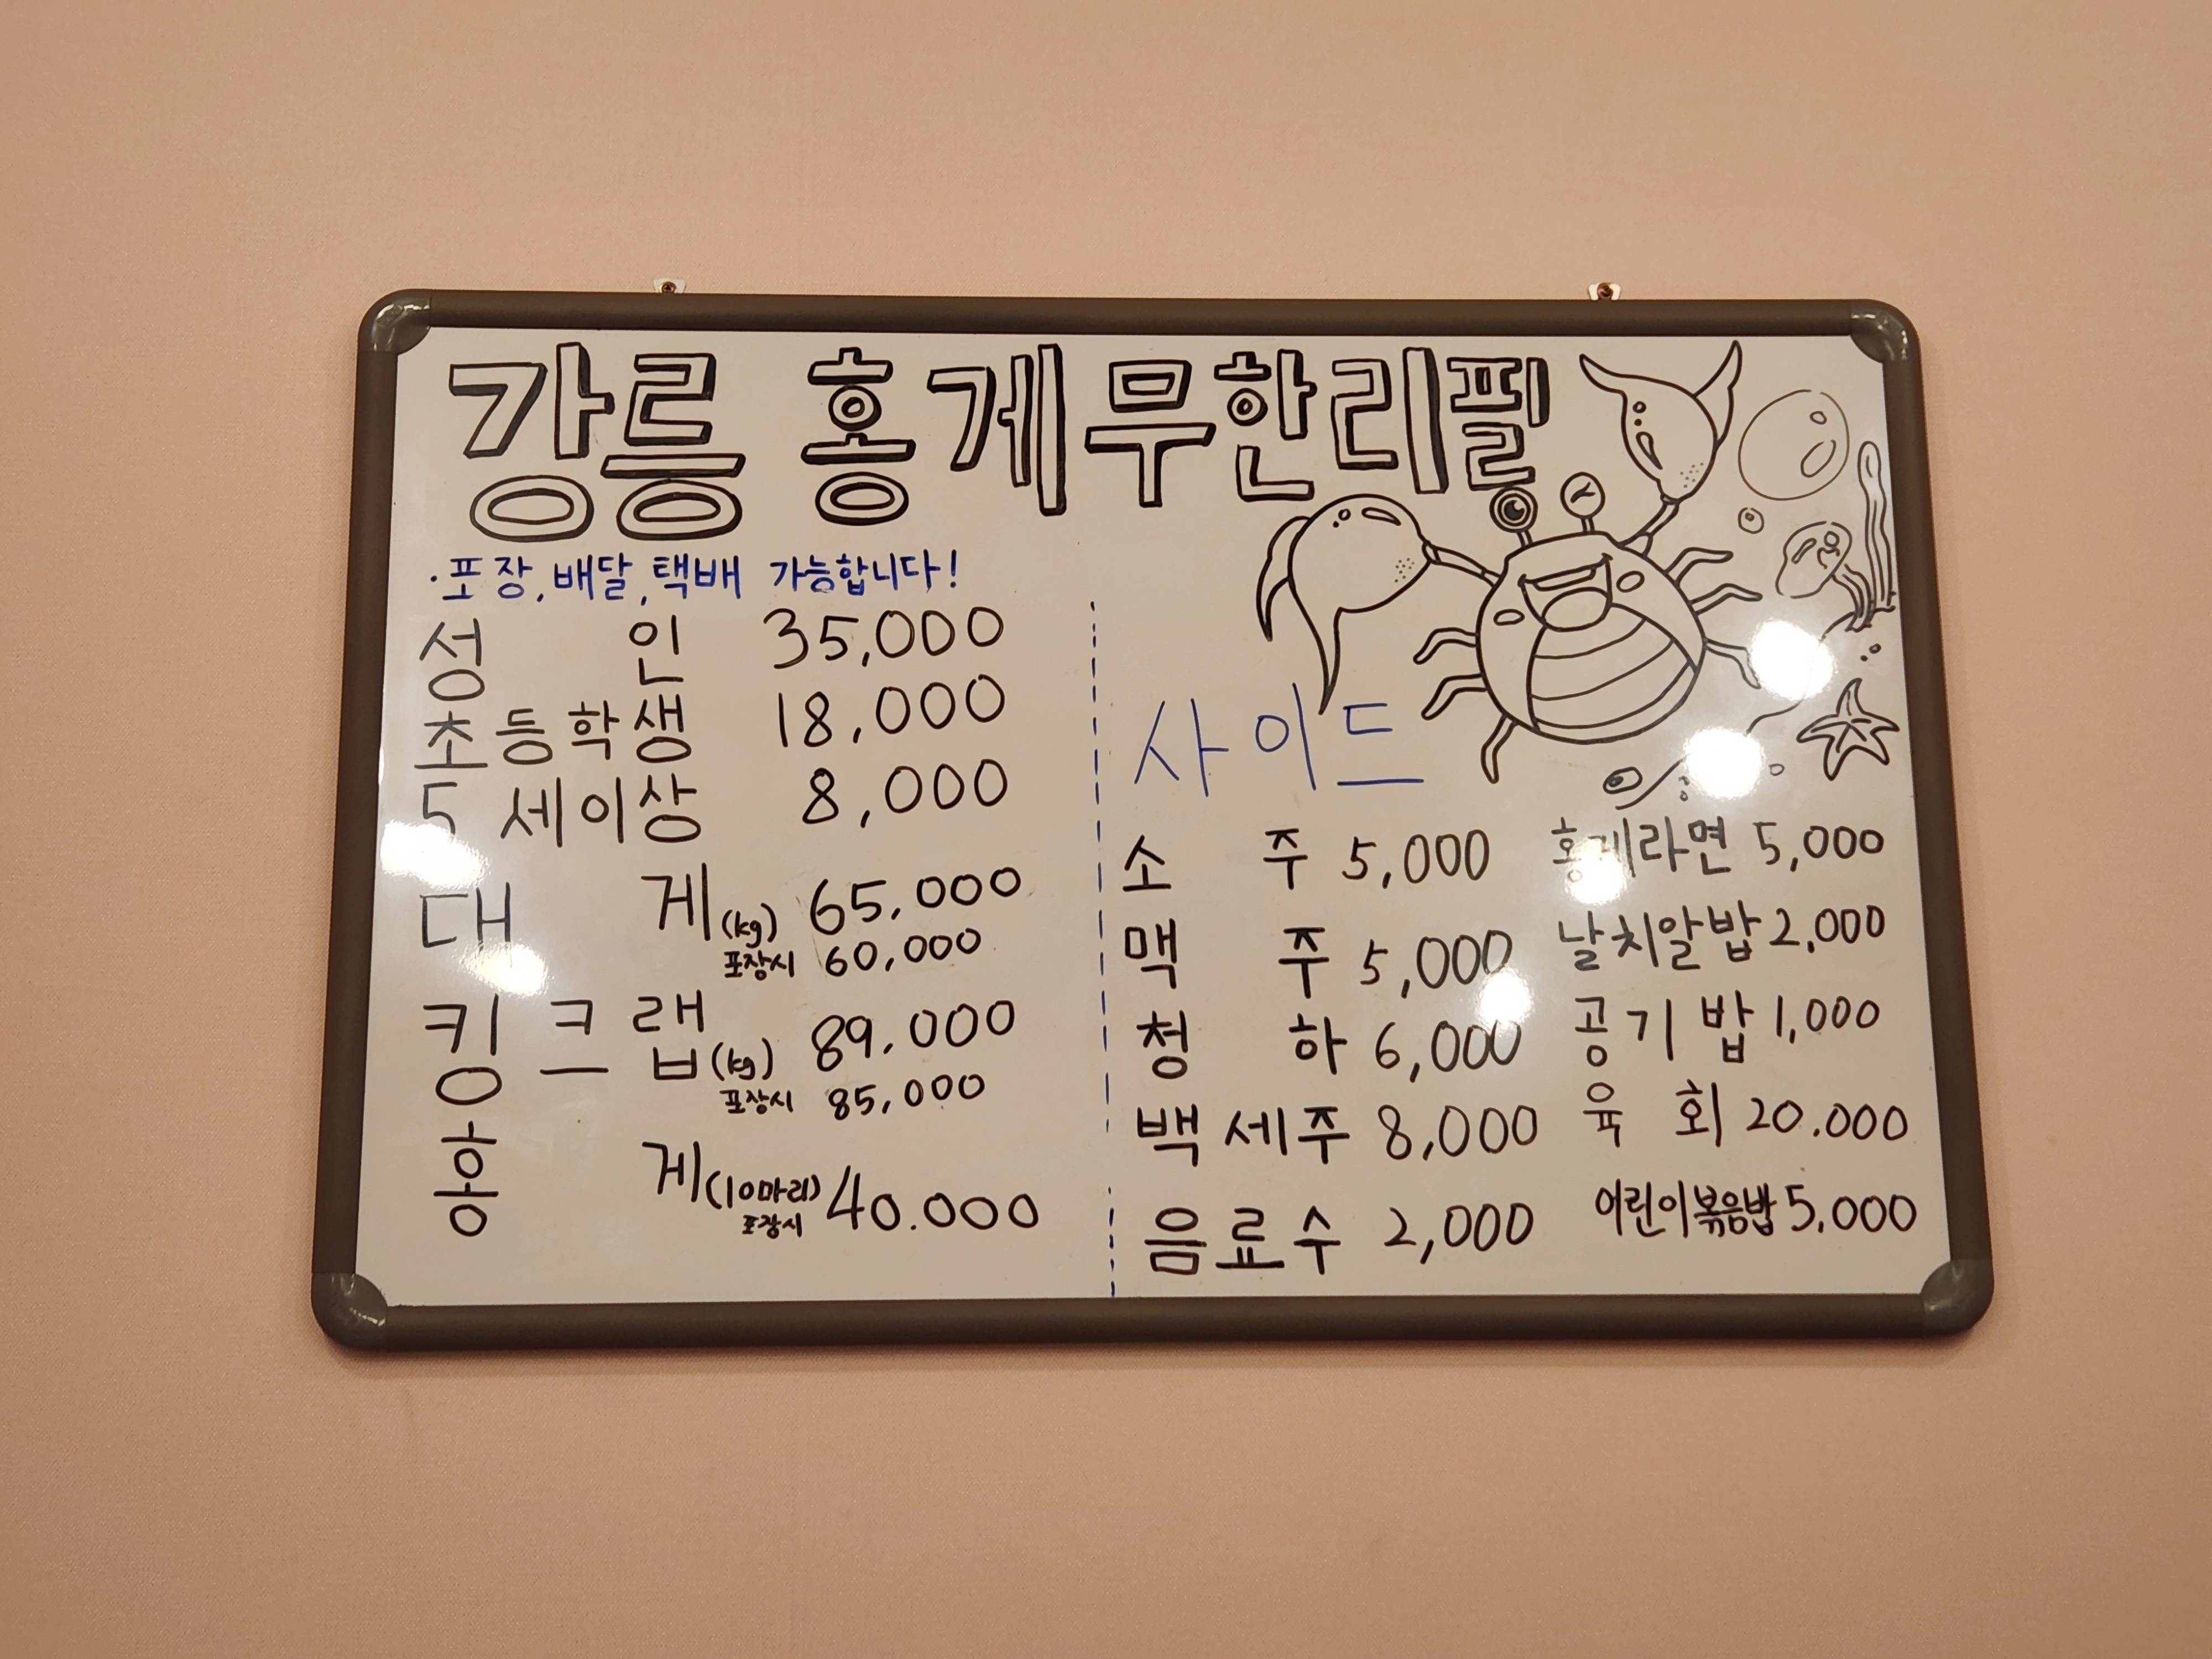 강릉 홍게무한리필
·포장,배달,택배 가능합니다!
성인 35,000
초등학생 18,000
5세이상 8,000
대게(kg) 65,000
포장시 60,000
킹크랩(kg) 89,000
포장시 85,000
홍게(10마리) 40.000
포장시
사이드
소주 5,000
맥주 5,000
청하 6,000
백세주 8,000
음료수 2,000
홍게라면 5,000
날치알밥 2,000
공기밥 1,000
육회 20.000
어린이볶음밥 5,000